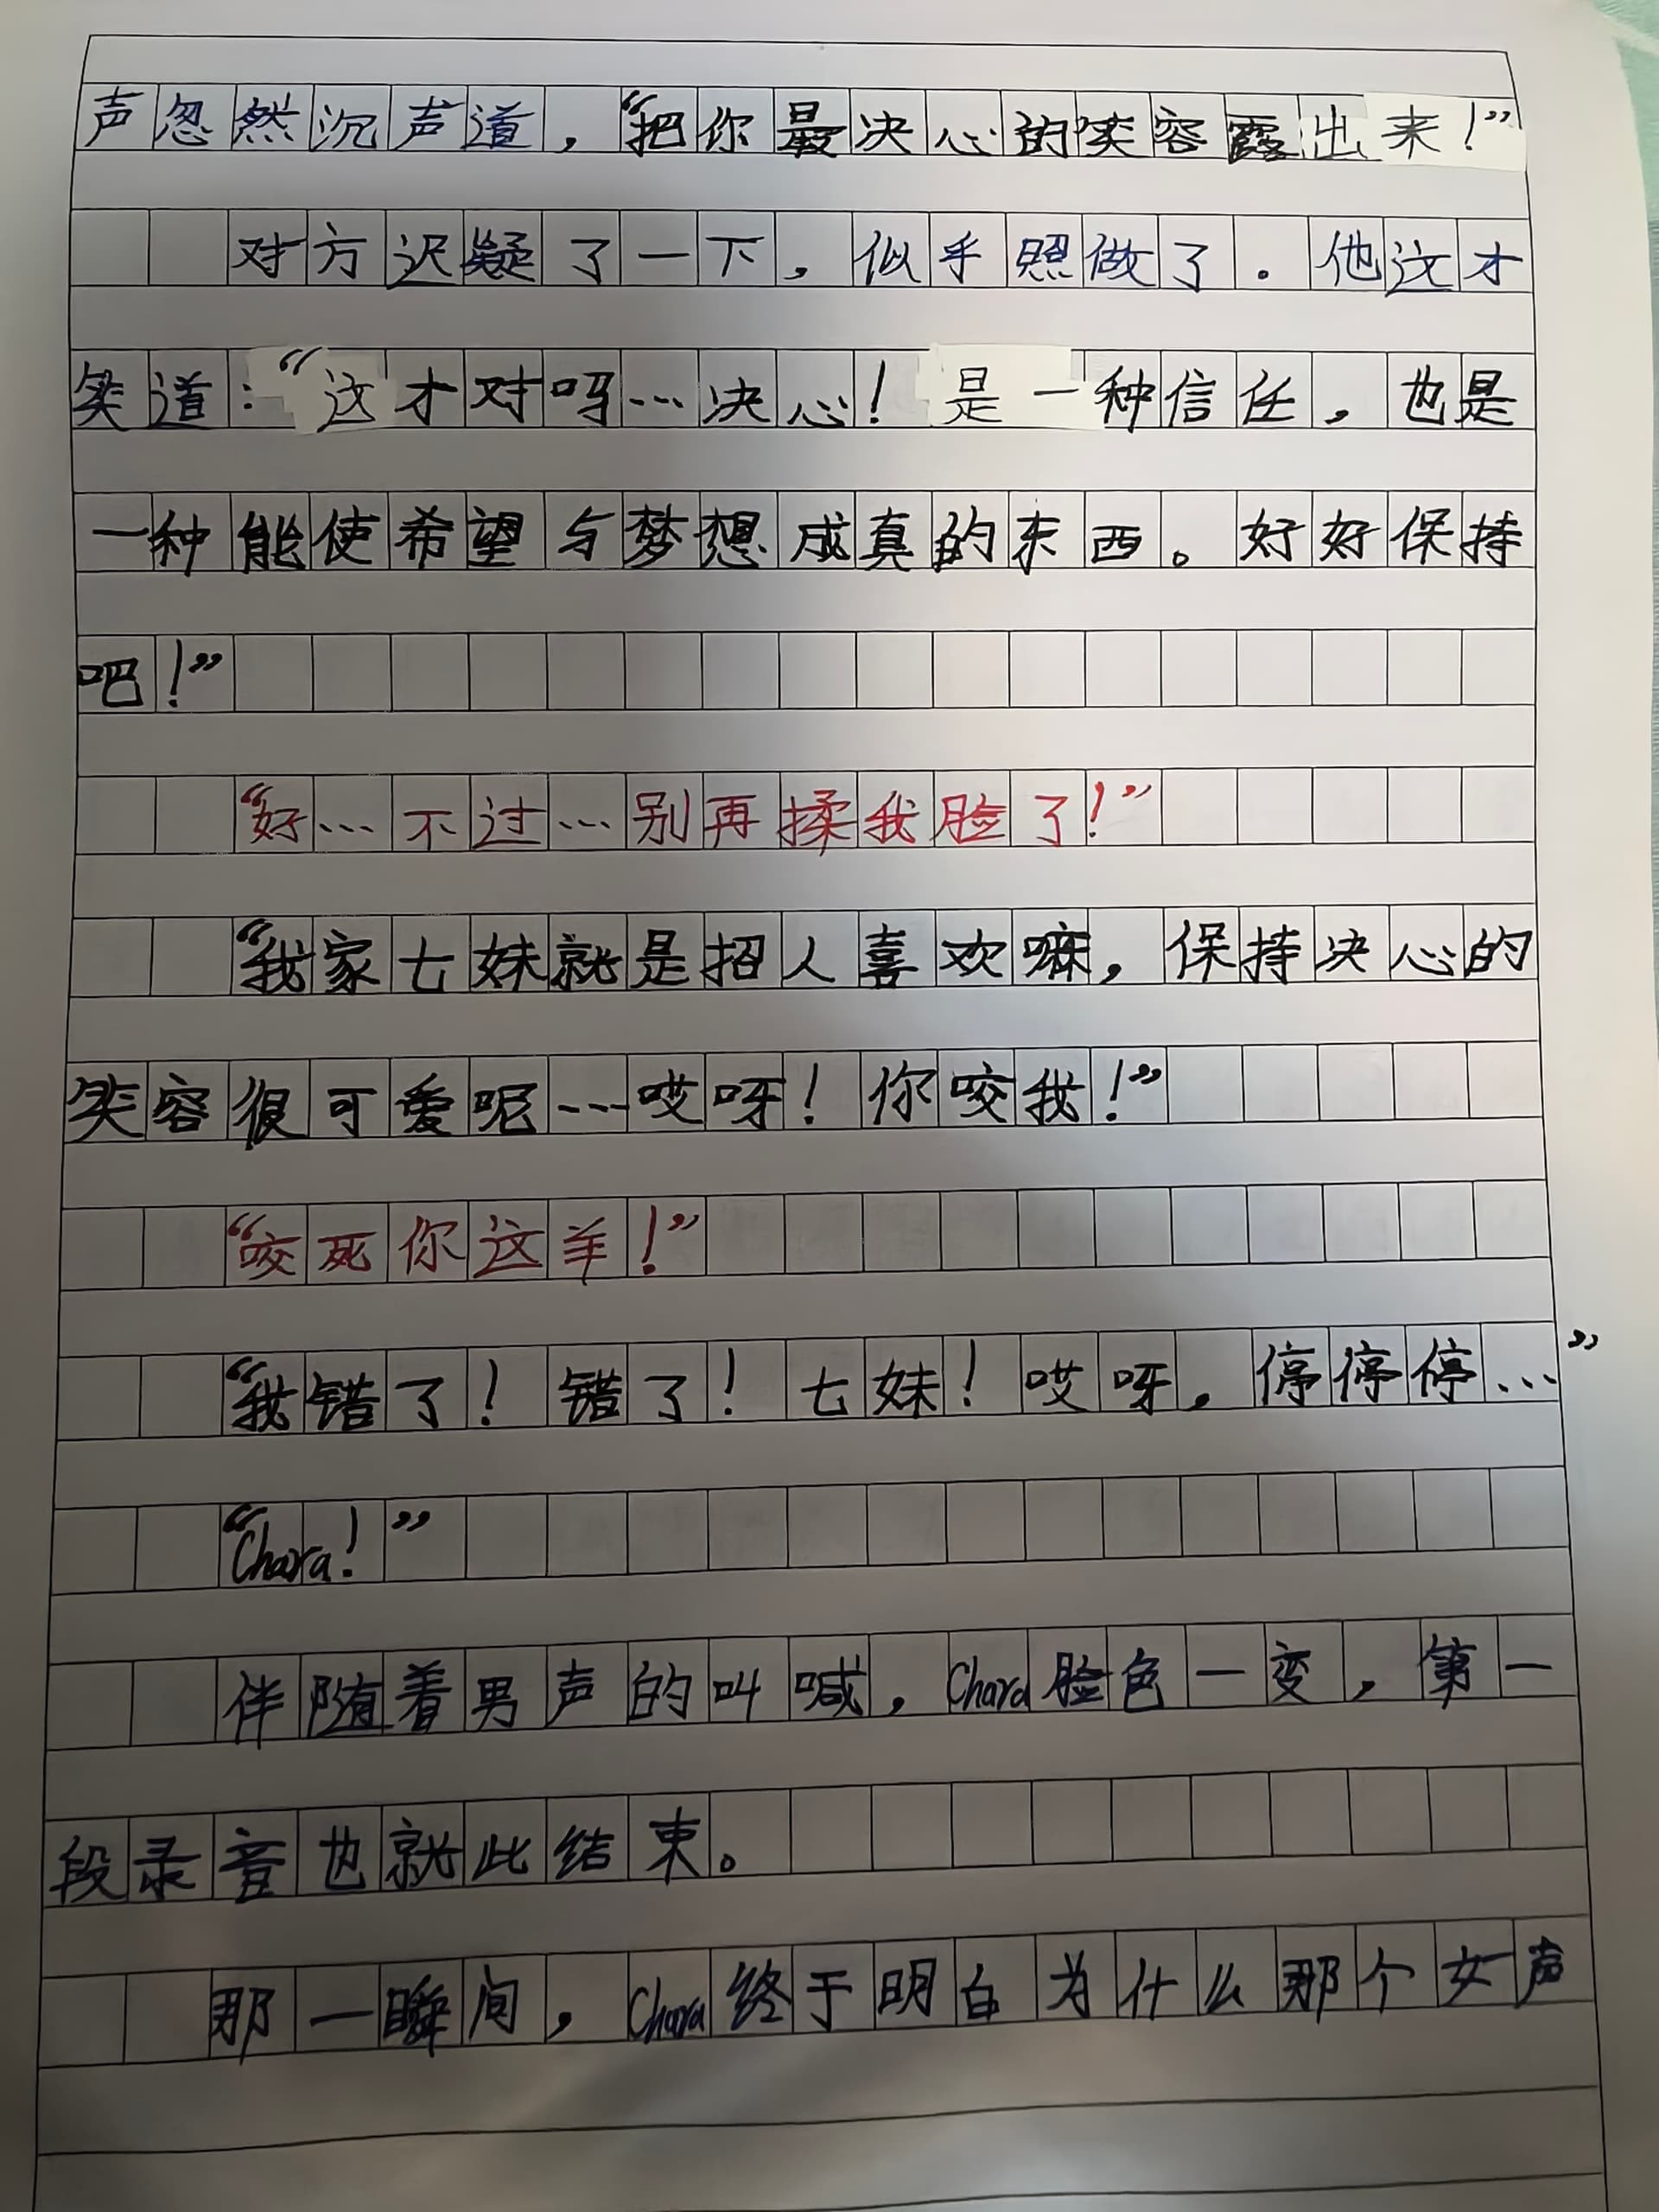 声忽然沉声道，“把你最决心的笑容露出来！”
对方迟疑了一下，似乎照做了．他这才
笑道：“这才对吗…决心！是一种信任，也是
一种能使希望与梦想成真的东西。好好保持
吧！”
“好…不过…别再揉我脸了！”
“我家七妹就是招人喜欢嘛，保持决心的
笑容很可爱呢---哎呀！你咬我！”
“咬死你这羊！”
“我错了！错了！七妹！哎呀，停停停…”
“Chara！”
伴随着男声的叫喊，Chara脸色一变，第一
段录音也就此结束。
那一瞬间，Chara终于明白为什么那个女声